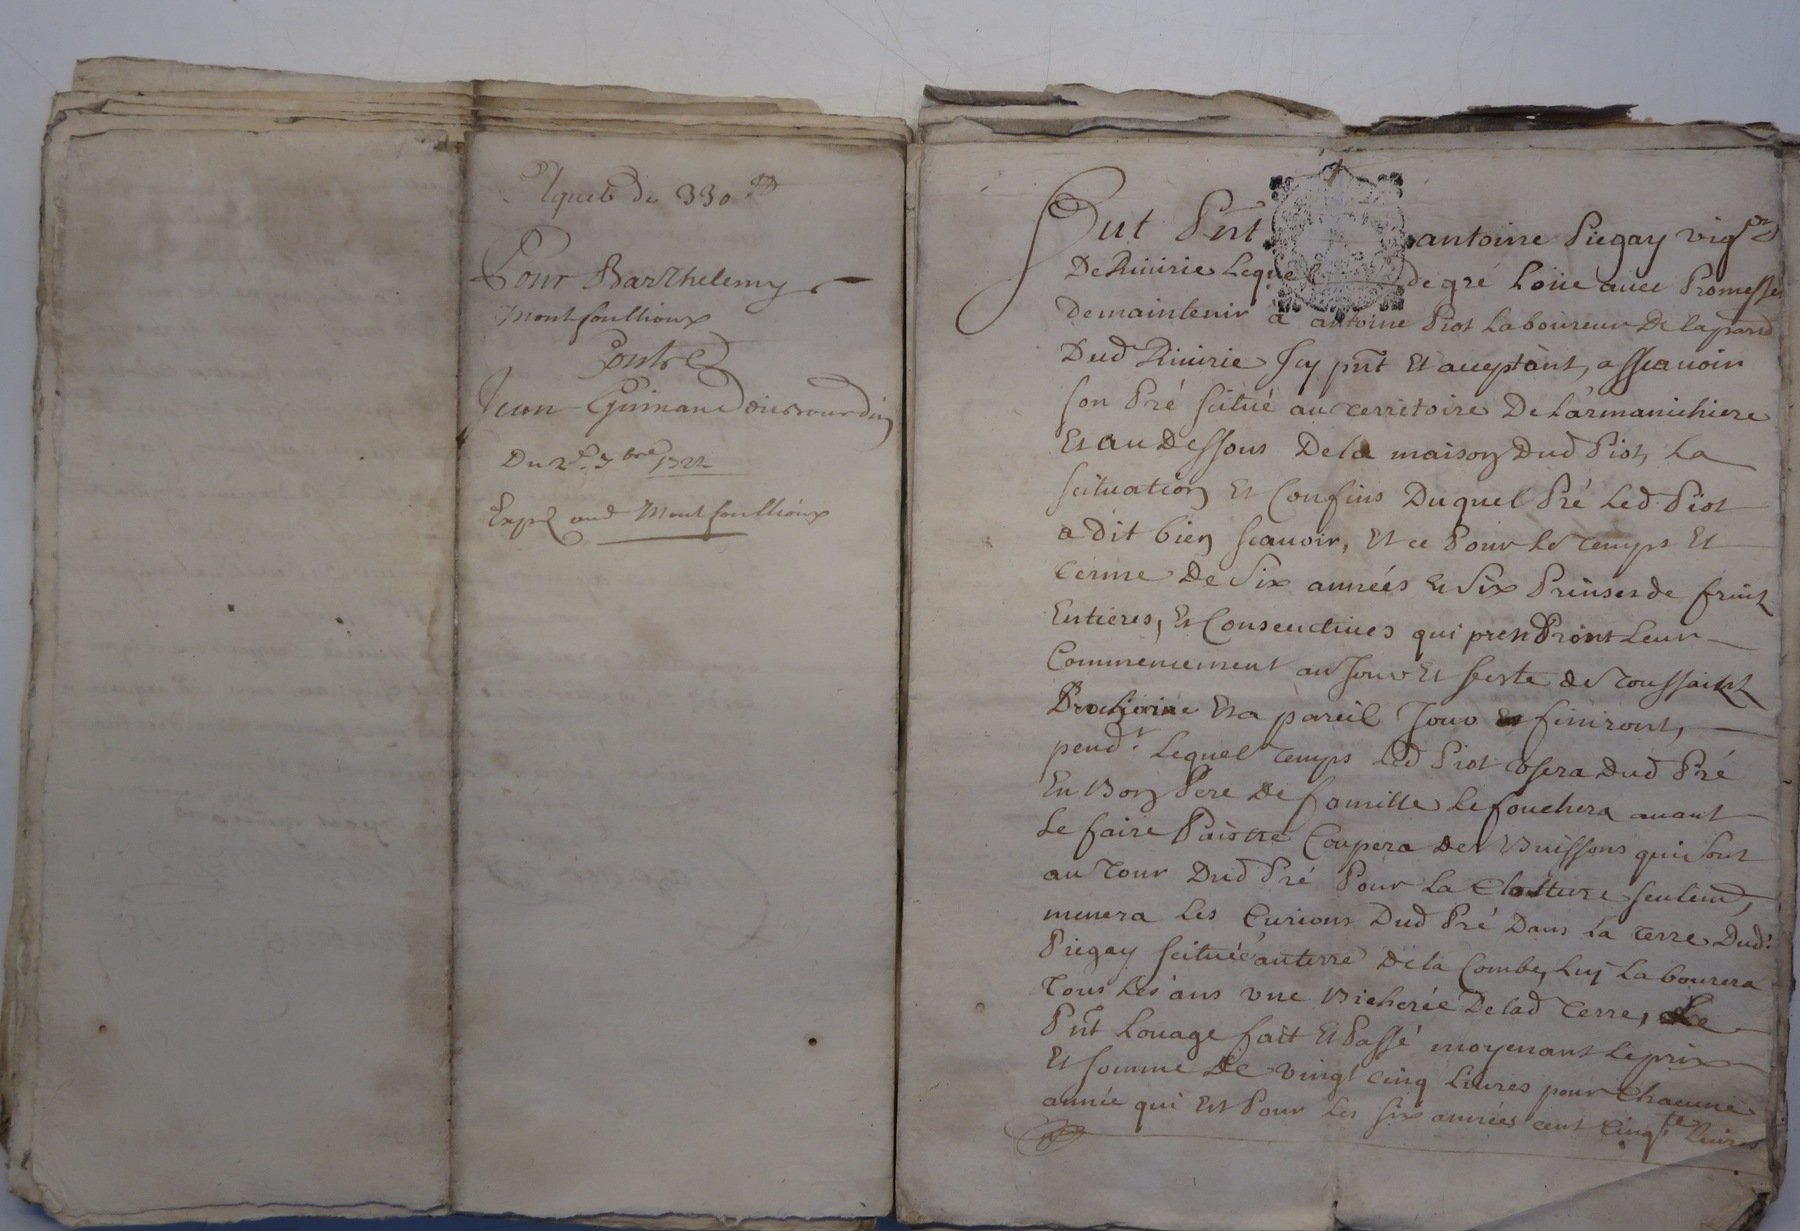 Aquets de 330 ₶
Pour Barthelemy
Montfoullioux
Contre
Jean Guinand dit
Du 2e 7bre 1722
Expé aud Montfoullioux
Fut Pnt antoine Piegay vigon
De Riuirie Lequel de gré Loüe auec Promesse
De maintenir a antoine Piot Laboureur De la parr
Dud Riuirie Icy pnt Et acceptant, a Scauoir
son Pré scitué au territoire De Larmanichiere
Et au Dessous De la maison Dud Piot, La
scituation Et Confins Duquel Pré Led Piot
a dit bien scauoir, Et ce Pour Le temps Et
terme De Six années Et Six Prinses de fruit
Entieres, Et Consecutiues qui prendront Leur
Commencement au Jour Et feste de Toussaint
Prochaine Et a pareil Jour finiront,
pendt Lequel temps Led Piot Vsera Dud Pré
En Bon Pere de famille Le fouchera auant
Le faire Paistre Coupera Des Buissons qui Sont
au Tour Dud Pré Pour La Closture seulemt,
menera Les Curions Dud Pré Dans La terre Dud
Piegay scituée au terre De la Combe, Luy Labourera
Tous Les ans vne Bicherée De lad terre, Le
Pnt Louage fait Et Passé moyenant Le prix
Et somme De vingt cinq Liures pour Chacune
année qui Est Pour Les six années cent Cinqte Liures